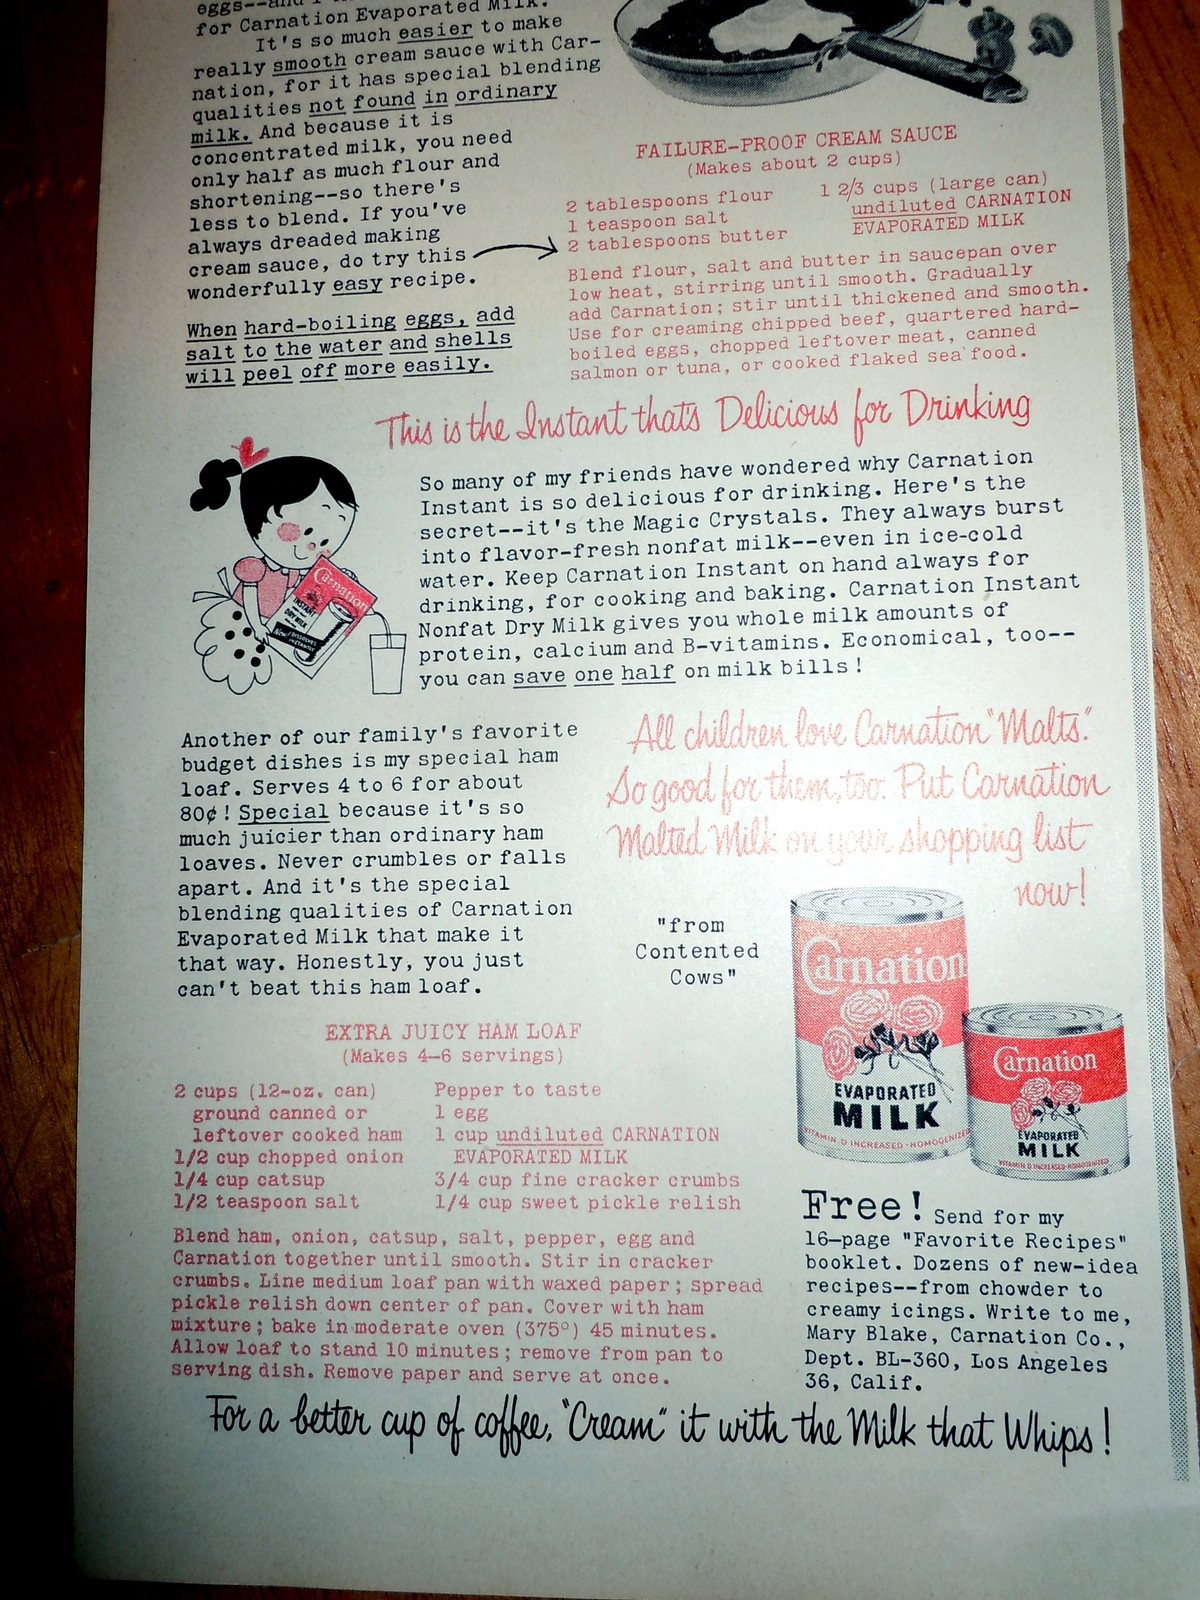 eggs--and I
for Carnation Evaporated Milk.
It's so much easier to make
really smooth cream sauce with Car-
nation, for it has special blending
qualities not found in ordinary
milk. And because it is
concentrated milk, you need
only half as much flour and
shortening--so there's
less to blend. If you've
always dreaded making
cream sauce, do try this
wonderfully easy recipe.
When hard-boiling eggs, add
salt to the water and shells
will peel off more easily.
FAILURE-PROOF CREAM SAUCE
(Makes about 2 cups)
2 tablespoons flour
1 teaspoon salt
2 tablespoons butter
1 2/3 cups (large can)
undiluted CARNATION
EVAPORATED MILK
Blend flour, salt and butter in saucepan over
low heat, stirring until smooth. Gradually
add Carnation; stir until thickened and smooth.
Use for creaming chipped beef, quartered hard-
boiled eggs, chopped leftover meat, canned
salmon or tuna, or cooked flaked sea food.
This is the Instant that's Delicious for Drinking
So many of my friends have wondered why Carnation
Instant is so delicious for drinking. Here's the
secret--it's the Magic Crystals. They always burst
into flavor-fresh nonfat milk--even in ice-cold
water. Keep Carnation Instant on hand always for
drinking, for cooking and baking. Carnation Instant
Nonfat Dry Milk gives you whole milk amounts of
protein, calcium and B-vitamins. Economical, too--
you can save one half on milk bills!
Carnation
INSTANT
DRY MILK
New! DISSOLVES
INSTANTLY
Another of our family's favorite
budget dishes is my special ham
loaf. Serves 4 to 6 for about
80¢! Special because it's so
much juicier than ordinary ham
loaves. Never crumbles or falls
apart. And it's the special
blending qualities of Carnation
Evaporated Milk that make it
that way. Honestly, you just
can't beat this ham loaf.
All children love Carnation "Malts."
So good for them, too. Put Carnation
Malted Milk on your shopping list
now!
"from
Contented
Cows"
Carnation
EVAPORATED
MILK
VITAMIN D INCREASED-HOMOGENIZED
Carnation
EVAPORATED
MILK
VITAMIN D INCREASED-HOMOGENIZED
EXTRA JUICY HAM LOAF
(Makes 4-6 servings)
2 cups (12-oz. can)
ground canned or
leftover cooked ham
1/2 cup chopped onion
1/4 cup catsup
1/2 teaspoon salt
Pepper to taste
1 egg
1 cup undiluted CARNATION
EVAPORATED MILK
3/4 cup fine cracker crumbs
1/4 cup sweet pickle relish
Blend ham, onion, catsup, salt, pepper, egg and
Carnation together until smooth. Stir in cracker
crumbs. Line medium loaf pan with waxed paper; spread
pickle relish down center of pan. Cover with ham
mixture; bake in moderate oven (375°) 45 minutes.
Allow loaf to stand 10 minutes; remove from pan to
serving dish. Remove paper and serve at once.
Free! Send for my
16-page "Favorite Recipes"
booklet. Dozens of new-idea
recipes--from chowder to
creamy icings. Write to me,
Mary Blake, Carnation Co.,
Dept. BL-360, Los Angeles
36, Calif.
For a better cup of coffee, "Cream" it with the Milk that Whips!